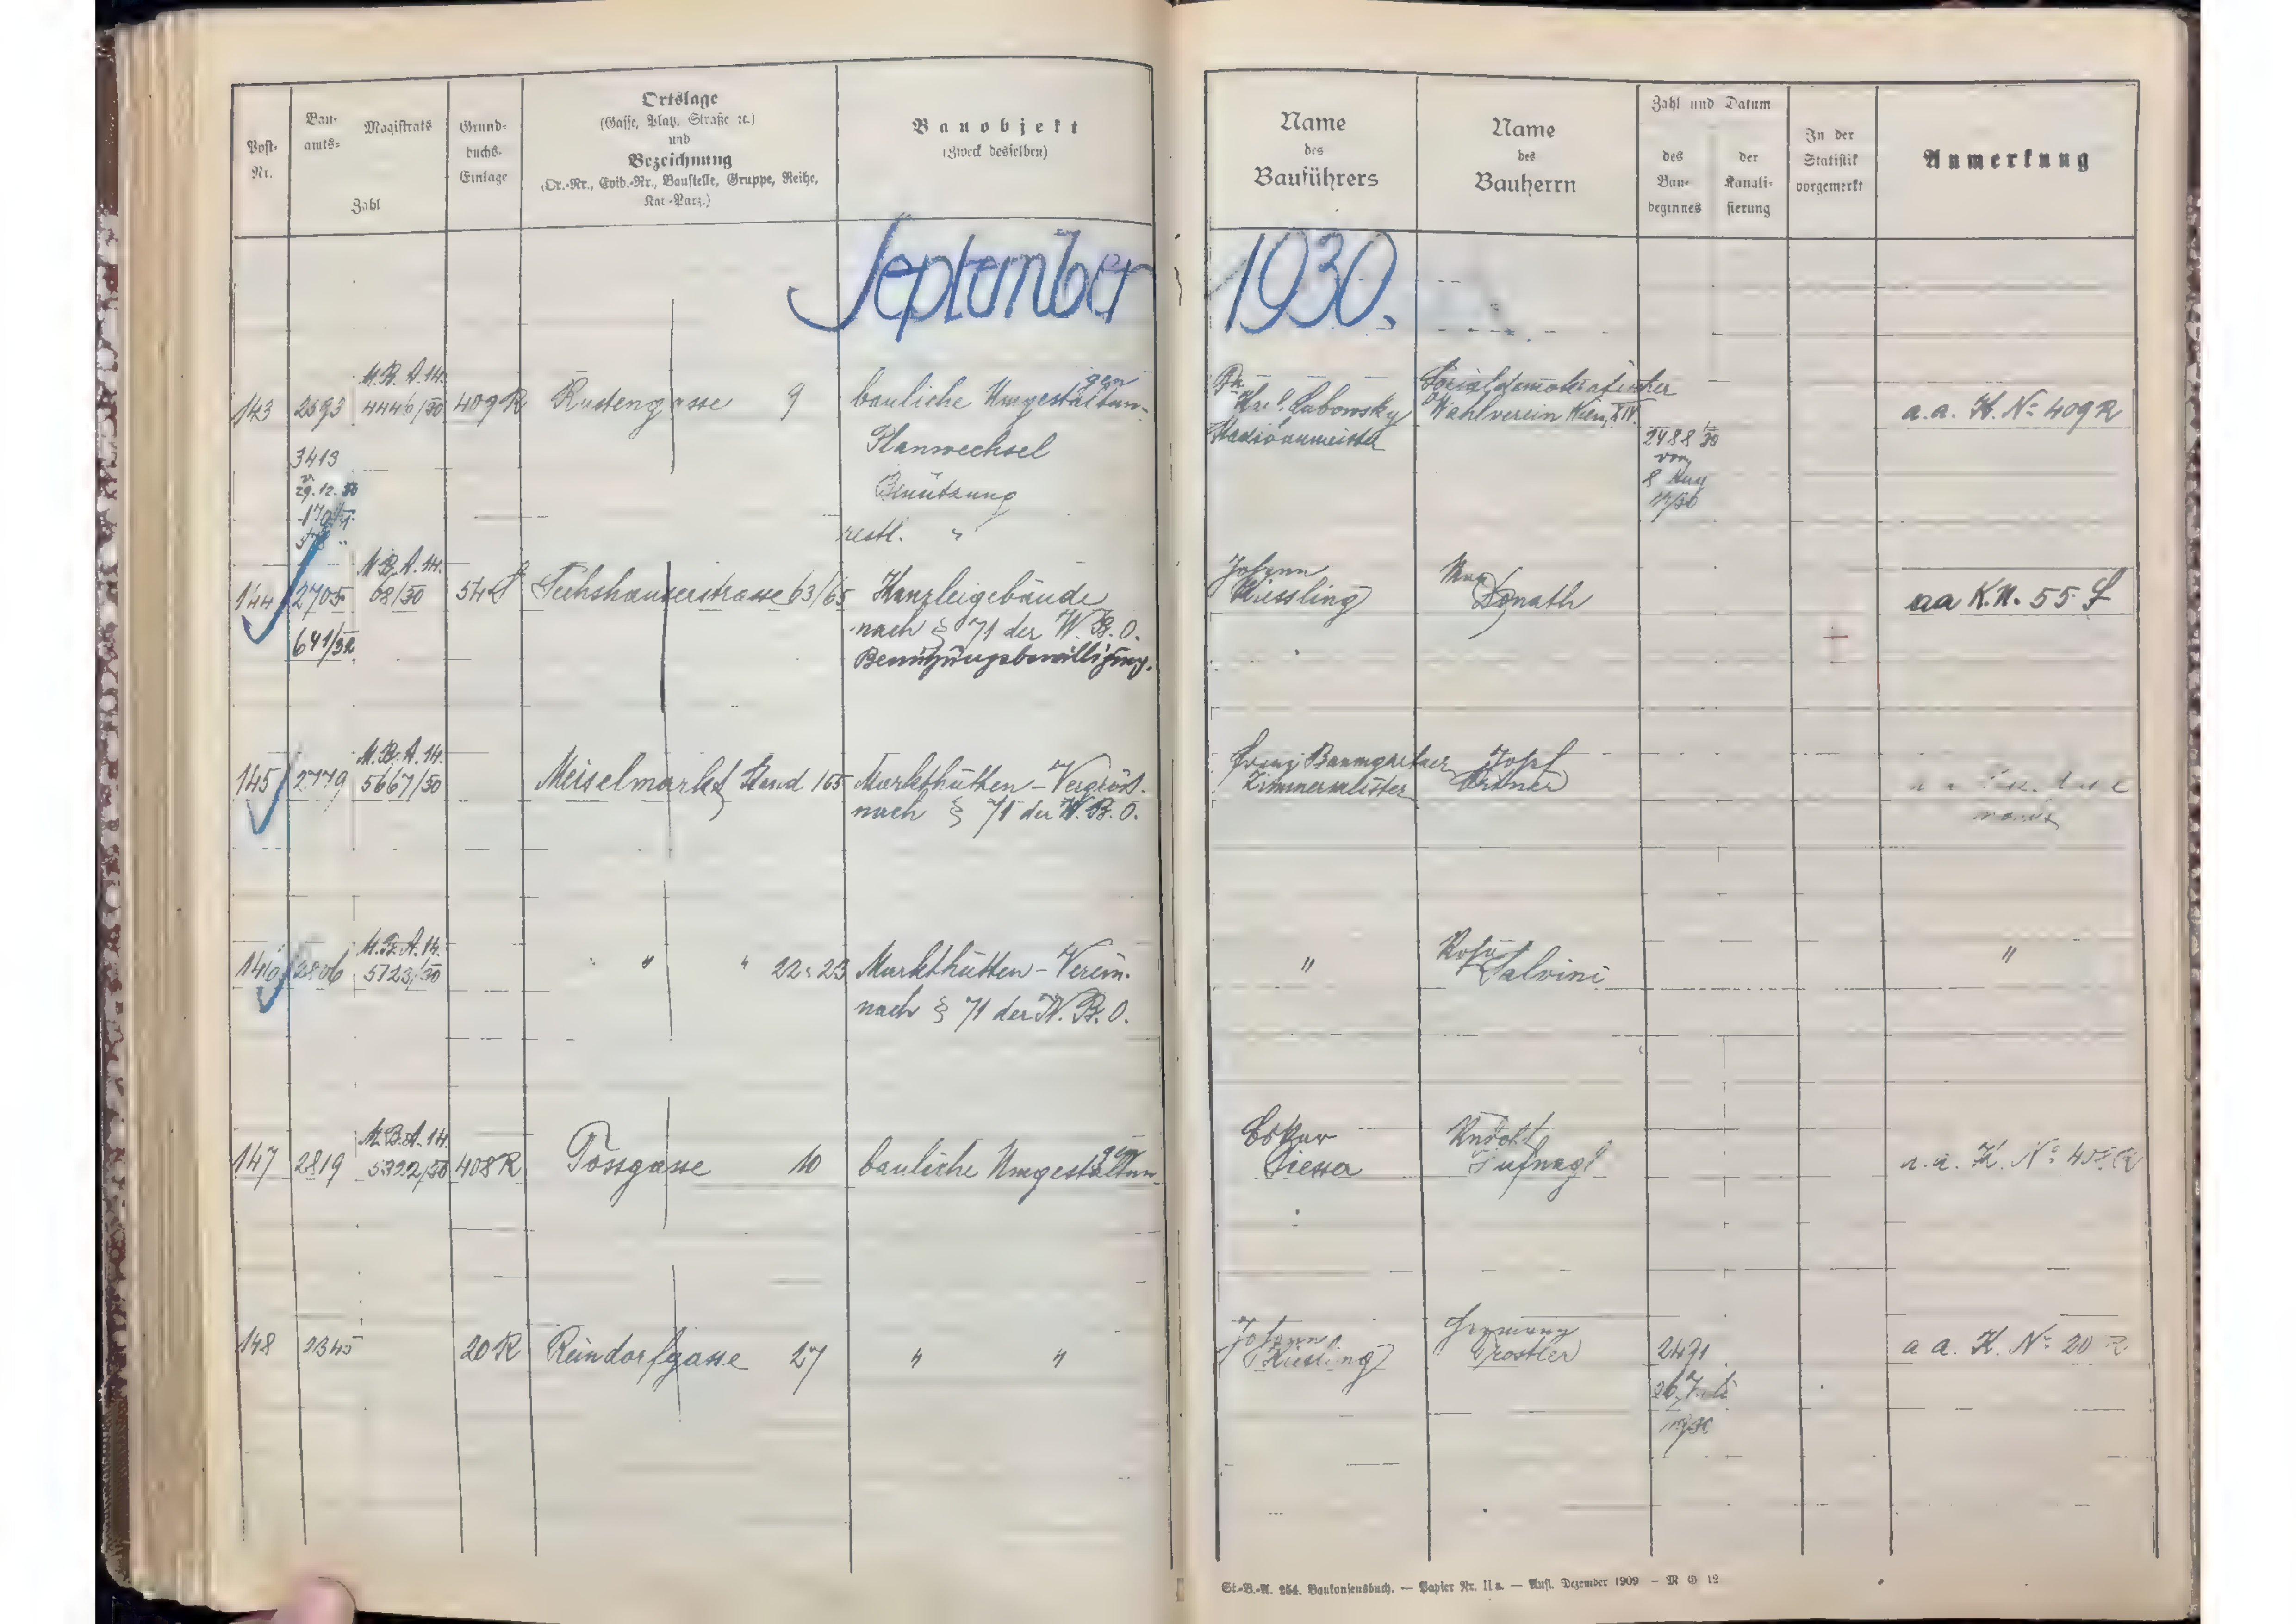 Post-
Nr.
Bau-
amts-
Magistrats
Zahl
Grund-
buchs-
Einlage
Ortslage
(Gasse, Platz, Straße ꝛc.)
und
Bezeichnung
(Or.-Nr., Evid.-Nr., Baustelle, Gruppe, Reihe,
Kat.-Parz.)
Bauobjekt
(Zweck desselben)
Name
des
Bauführers
Name
des
Bauherrn
Zahl und Datum
des
Bau-
beginnes
der
Kanali-
sierung
In der
Statistik
vorgemerkt
Anmerkung
September 1930.
143 2693 M.B.A.14. 4446/30 409 R Rustengasse 9 bauliche Umgestaltungen
Lubowsky
Stadtbaumeister
Sozialdemokratischer
Wahlverein Wien, XIV.
a.a. K. No 409 R
3413
29.12.30
Planwechsel
Benützung
restl. "
2488/30
vom
8 Aug
144 2705 M.B.A.14. 68/30 54 S Sechshauserstrasse 63/65 Kanzleigebäude
nach § 71 der W.B.O.
641/32
Benützungsbewilligung.
Johann
Kiessling
Max
Donath
aa K.N. 55 S
145 2779 M.B.A.14. 5667/30 Meiselmarkt Stand 165 Markthütten-Vergröß.
nach § 71 der W.B.O.
Franz Baumgartner
Zimmermeister
Josef
Ortner
146 2806 M.B.A.14. 5723/30 " " 22-23 Markthütten-Verein.
nach § 71 der W.B.O.
" Salvini "
147 2819 M.B.A.14. 5322/30 408 R Tossgasse 10 bauliche Umgestaltungen
Hufnagl
a.a. K. No 408 R
148 2345 20 R Reindorfgasse 27 " "
Johann
Kiesling
Hermann
Trostler
2491
a a. K. No 20 R
St.-B.-A. 254. Baukonsensbuch. — Papier Nr. II a. — Aufl. Dezember 1909 — M G 12